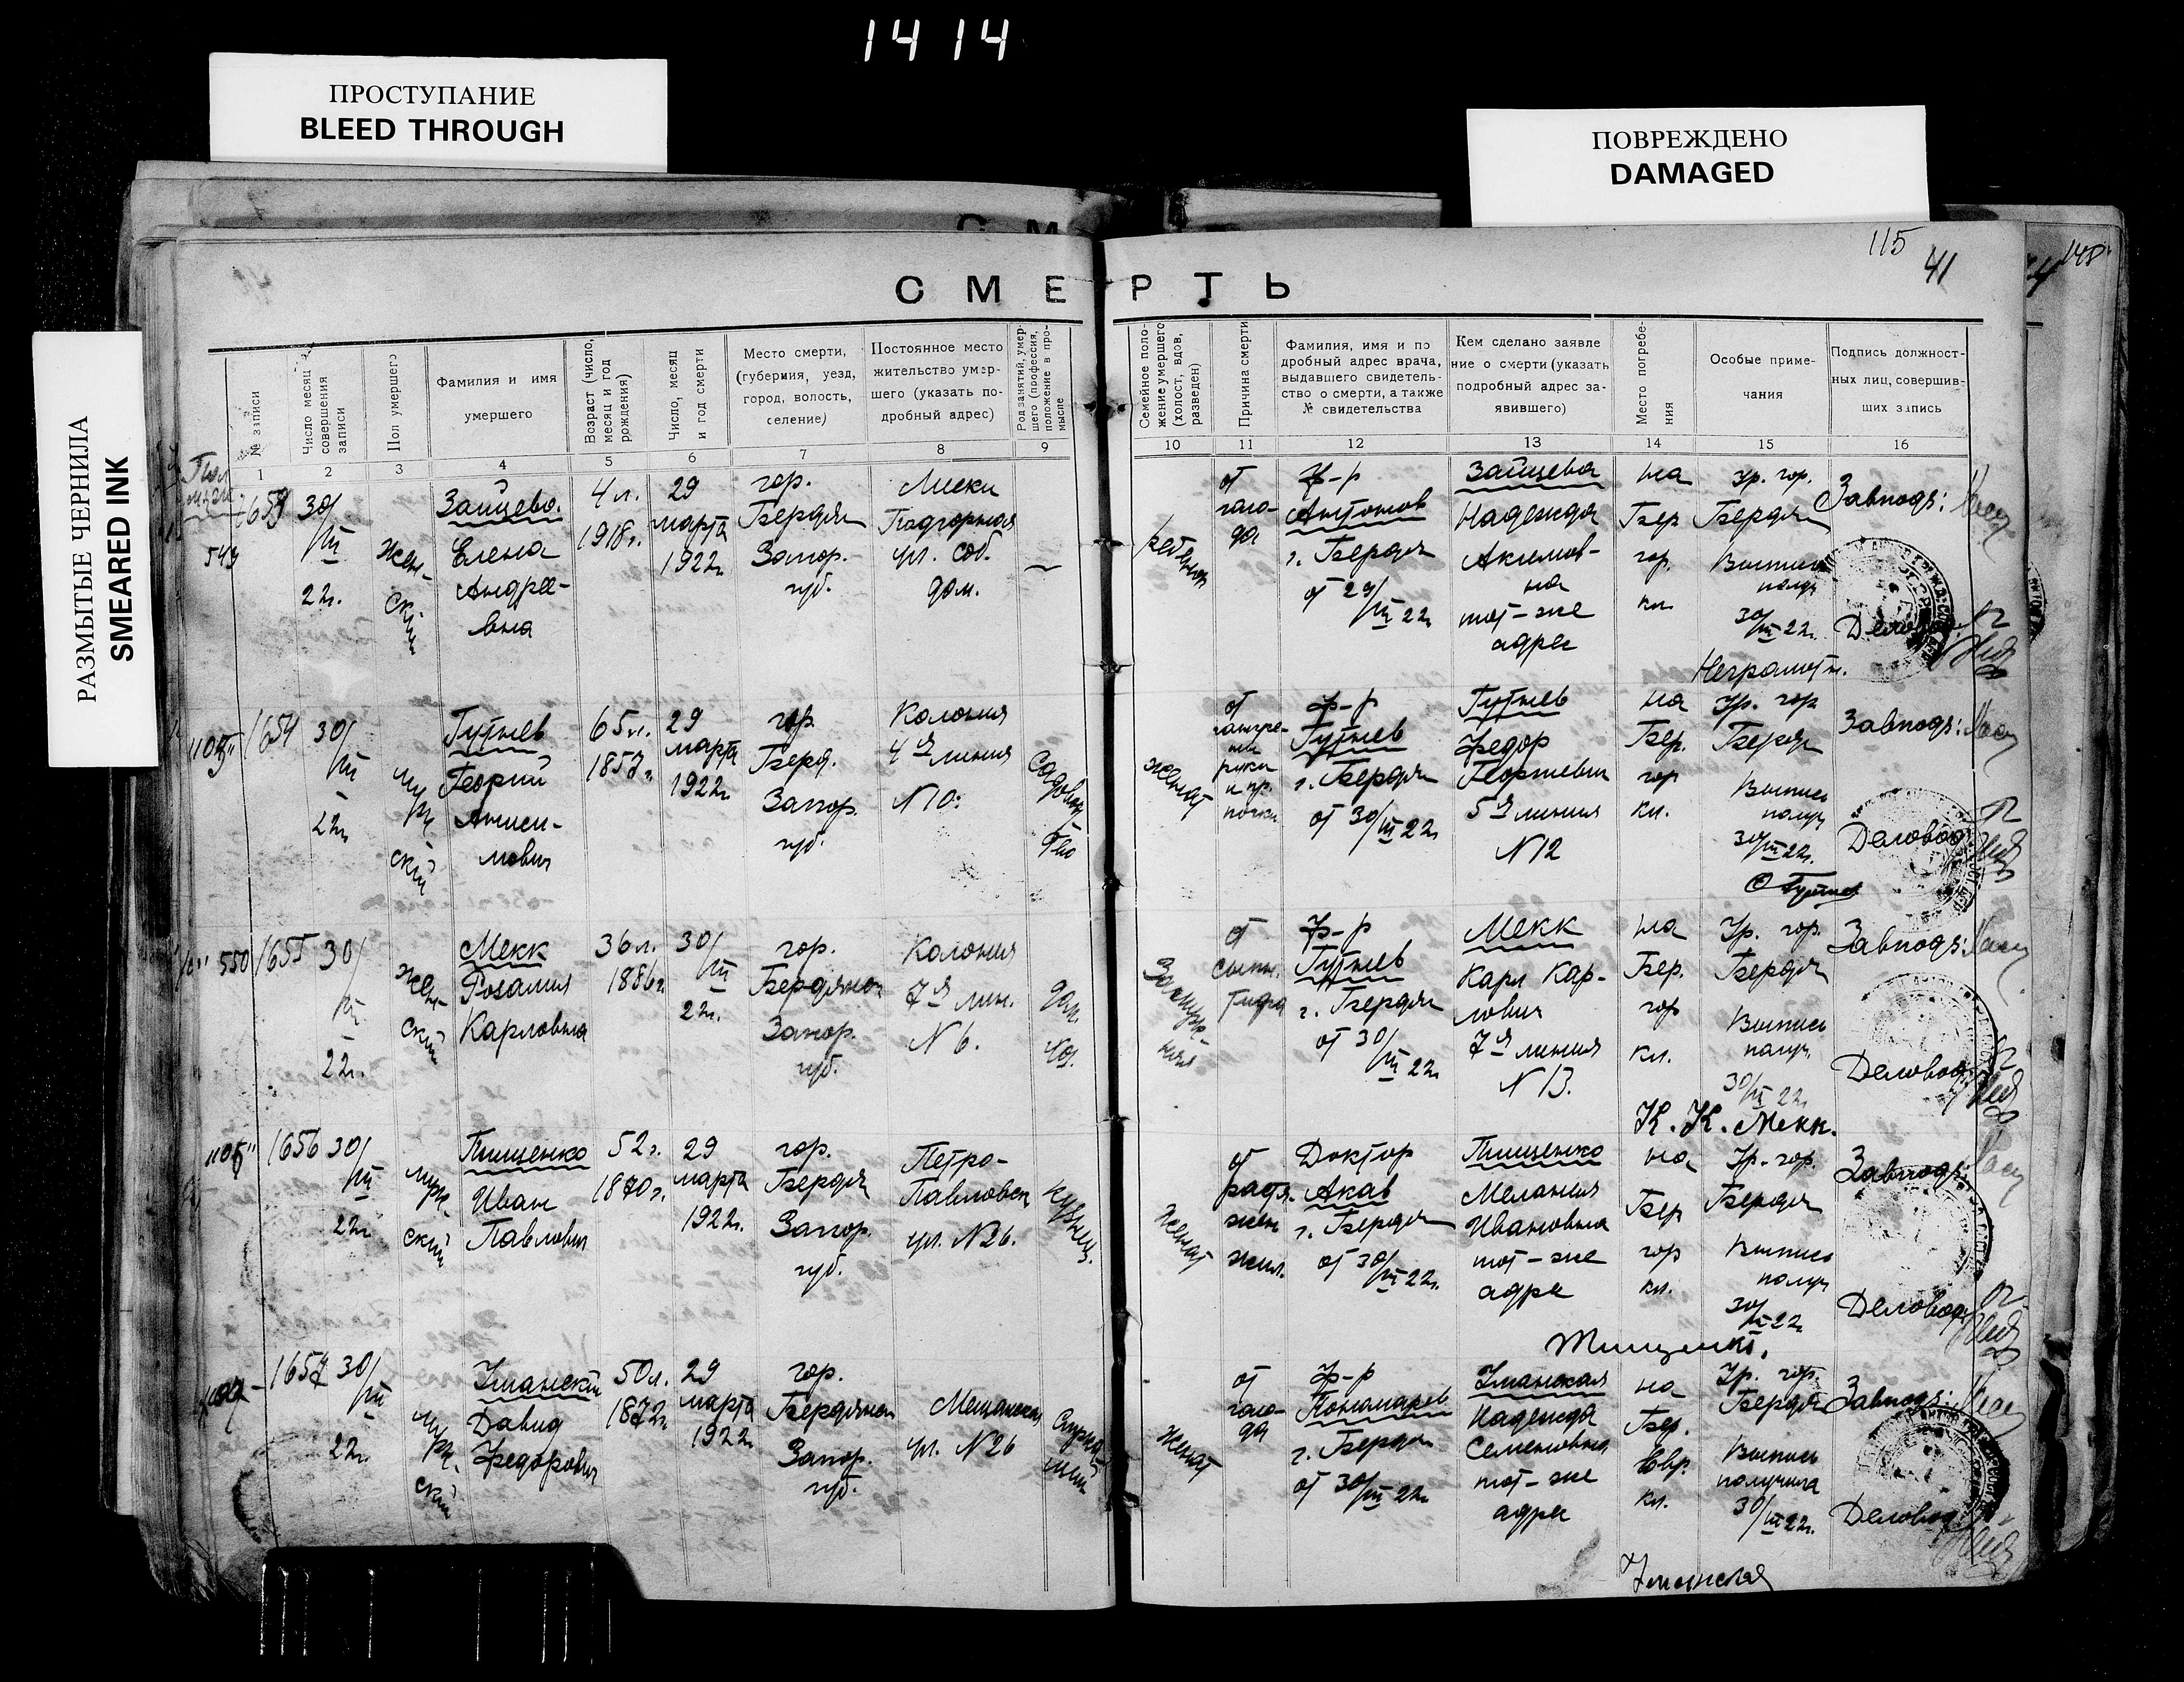 1414
ПРОСТУПАНИЕ
BLEED THROUGH
ПОВРЕЖДЕНО
DAMAGED
РАЗМЫТЫЕ ЧЕРНИЛА
SMEARED INK
115
41
СМЕРТЬ
№ записи
Число месяц
совершения
записи
Пол умершего
Фамилия и имя
умершего
Возраст (число,
месяц и год
рождения)
Число, месяц
и год смерти
Место смерти,
(губерния, уезд,
город, волость,
селение)
Постоянное место
жительство умер-
шего (указать по-
дробный адрес)
Род занятий, умер-
шего (профессия,
положение в про-
мысле
Семейное поло-
жение умершего
(холост, вдов,
разведен)
Причина смерти
Фамилия, имя и по
дробный адрес врача,
выдавшего свидетель-
ство о смерти, а также
№ свидетельства
Кем сделано заявле
ние о смерти (указать
подробный адрес за-
явившего)
Место погребе-
ния
Особые приме-
чания
Подпись должност-
ных лиц, совершив-
ших запись
1 2 3 4 5 6 7 8 9
10 11 12 13 14 15 16
549
30/III
22г.
Жен-
ский
Зайцева
Елена
Андре-
вна
4 л.
1918г.
29
марта
1922г.
гор.
Бердян
Запор.
губ.
Лиски
Подгорная
ул. соб.
дом.
—
ребенок
от
голо-
да
ф-р
Антонов
г. Бердян
от 29/III 22г.
Зайцева
Надежда
Акимов-
на
тот-же
адрес
на
Бер
гор.
кл.
Гр. гор.
Бердян
Выпись
получ
30/III 22г.
Неграмотн.
Завподз:
Деловод
1654
30/III
22г.
муж-
ский
Гутнев
Георгий
Аниси-
мович
65 л.
1857г.
29
марта
1922г.
гор.
Берд.
Запор.
губ.
Колония
4я линия
N 10.
Садовод
женат
от
гангре-
ны
руки
и пр.
почки
ф-р
Гутнев
г. Бердян
от 30/III 22г.
Гутнев
Федор
Георгиевич
5я линия
N 12
на
Бер.
гор
кл.
Гр. гор
Бердян
Выпись
получ
30/III 22г.
Завподз:
Деловод
550
1655
30/III
22г.
Жен-
ский
Мекк
Розалия
Карловна
36 л.
1886г.
30/III
22г.
гор.
Бердянск
Запор.
губ.
Колония
7я лин.
N 6.
Дом.
хоз.
Замуж-
няя
от
сыпн.
тифа
ф-р
Гутнев
г. Бердян
от 30/III 22г.
Мекк
Карл Кар-
лович
7я линия
N 13.
на
Бер.
гор
кл.
Гр. гор.
Бердян
Выпись
получ
30/III 22г.
К. К. Мекк.
Завподз:
Деловод
1656
30/III
22г.
муж-
ский
Тищенко
Иван
Павлович
52г.
1870г.
29
марта
1922г.
гор.
Бердян
Запор.
губ.
Петро-
Павловск
ул. N 26.
кузнец.
женат
от
растя-
жен
жил.
Доктор
Акав
г. Бердян
от 30/III 22г.
Тищенко
Мелания
Ивановна
тот-же
адрес
на
Бер
гор
кл.
Гр. гор.
Бердян
Выпись
получ
30/III 22г.
Тищенко.
Завподз:
Деловод
1657
30/III
22г.
муж-
ский
Уманский
Давид
Федорович
50 л.
1872г.
29
марта
1922г.
гор.
Бердянск
Запор.
губ.
Мещанская
ул. N 26
Служащий
женат
от
голо-
да
ф-р
Пономарев
г. Бердян
от 30/III 22г.
Уманская
Надежда
Семеновна
тот-же
адрес
на
Бер.
Евр.
кл.
Гр. гор.
Бердян
Выпись
получила
30/III 22г.
Завподз:
Деловод
Уманская